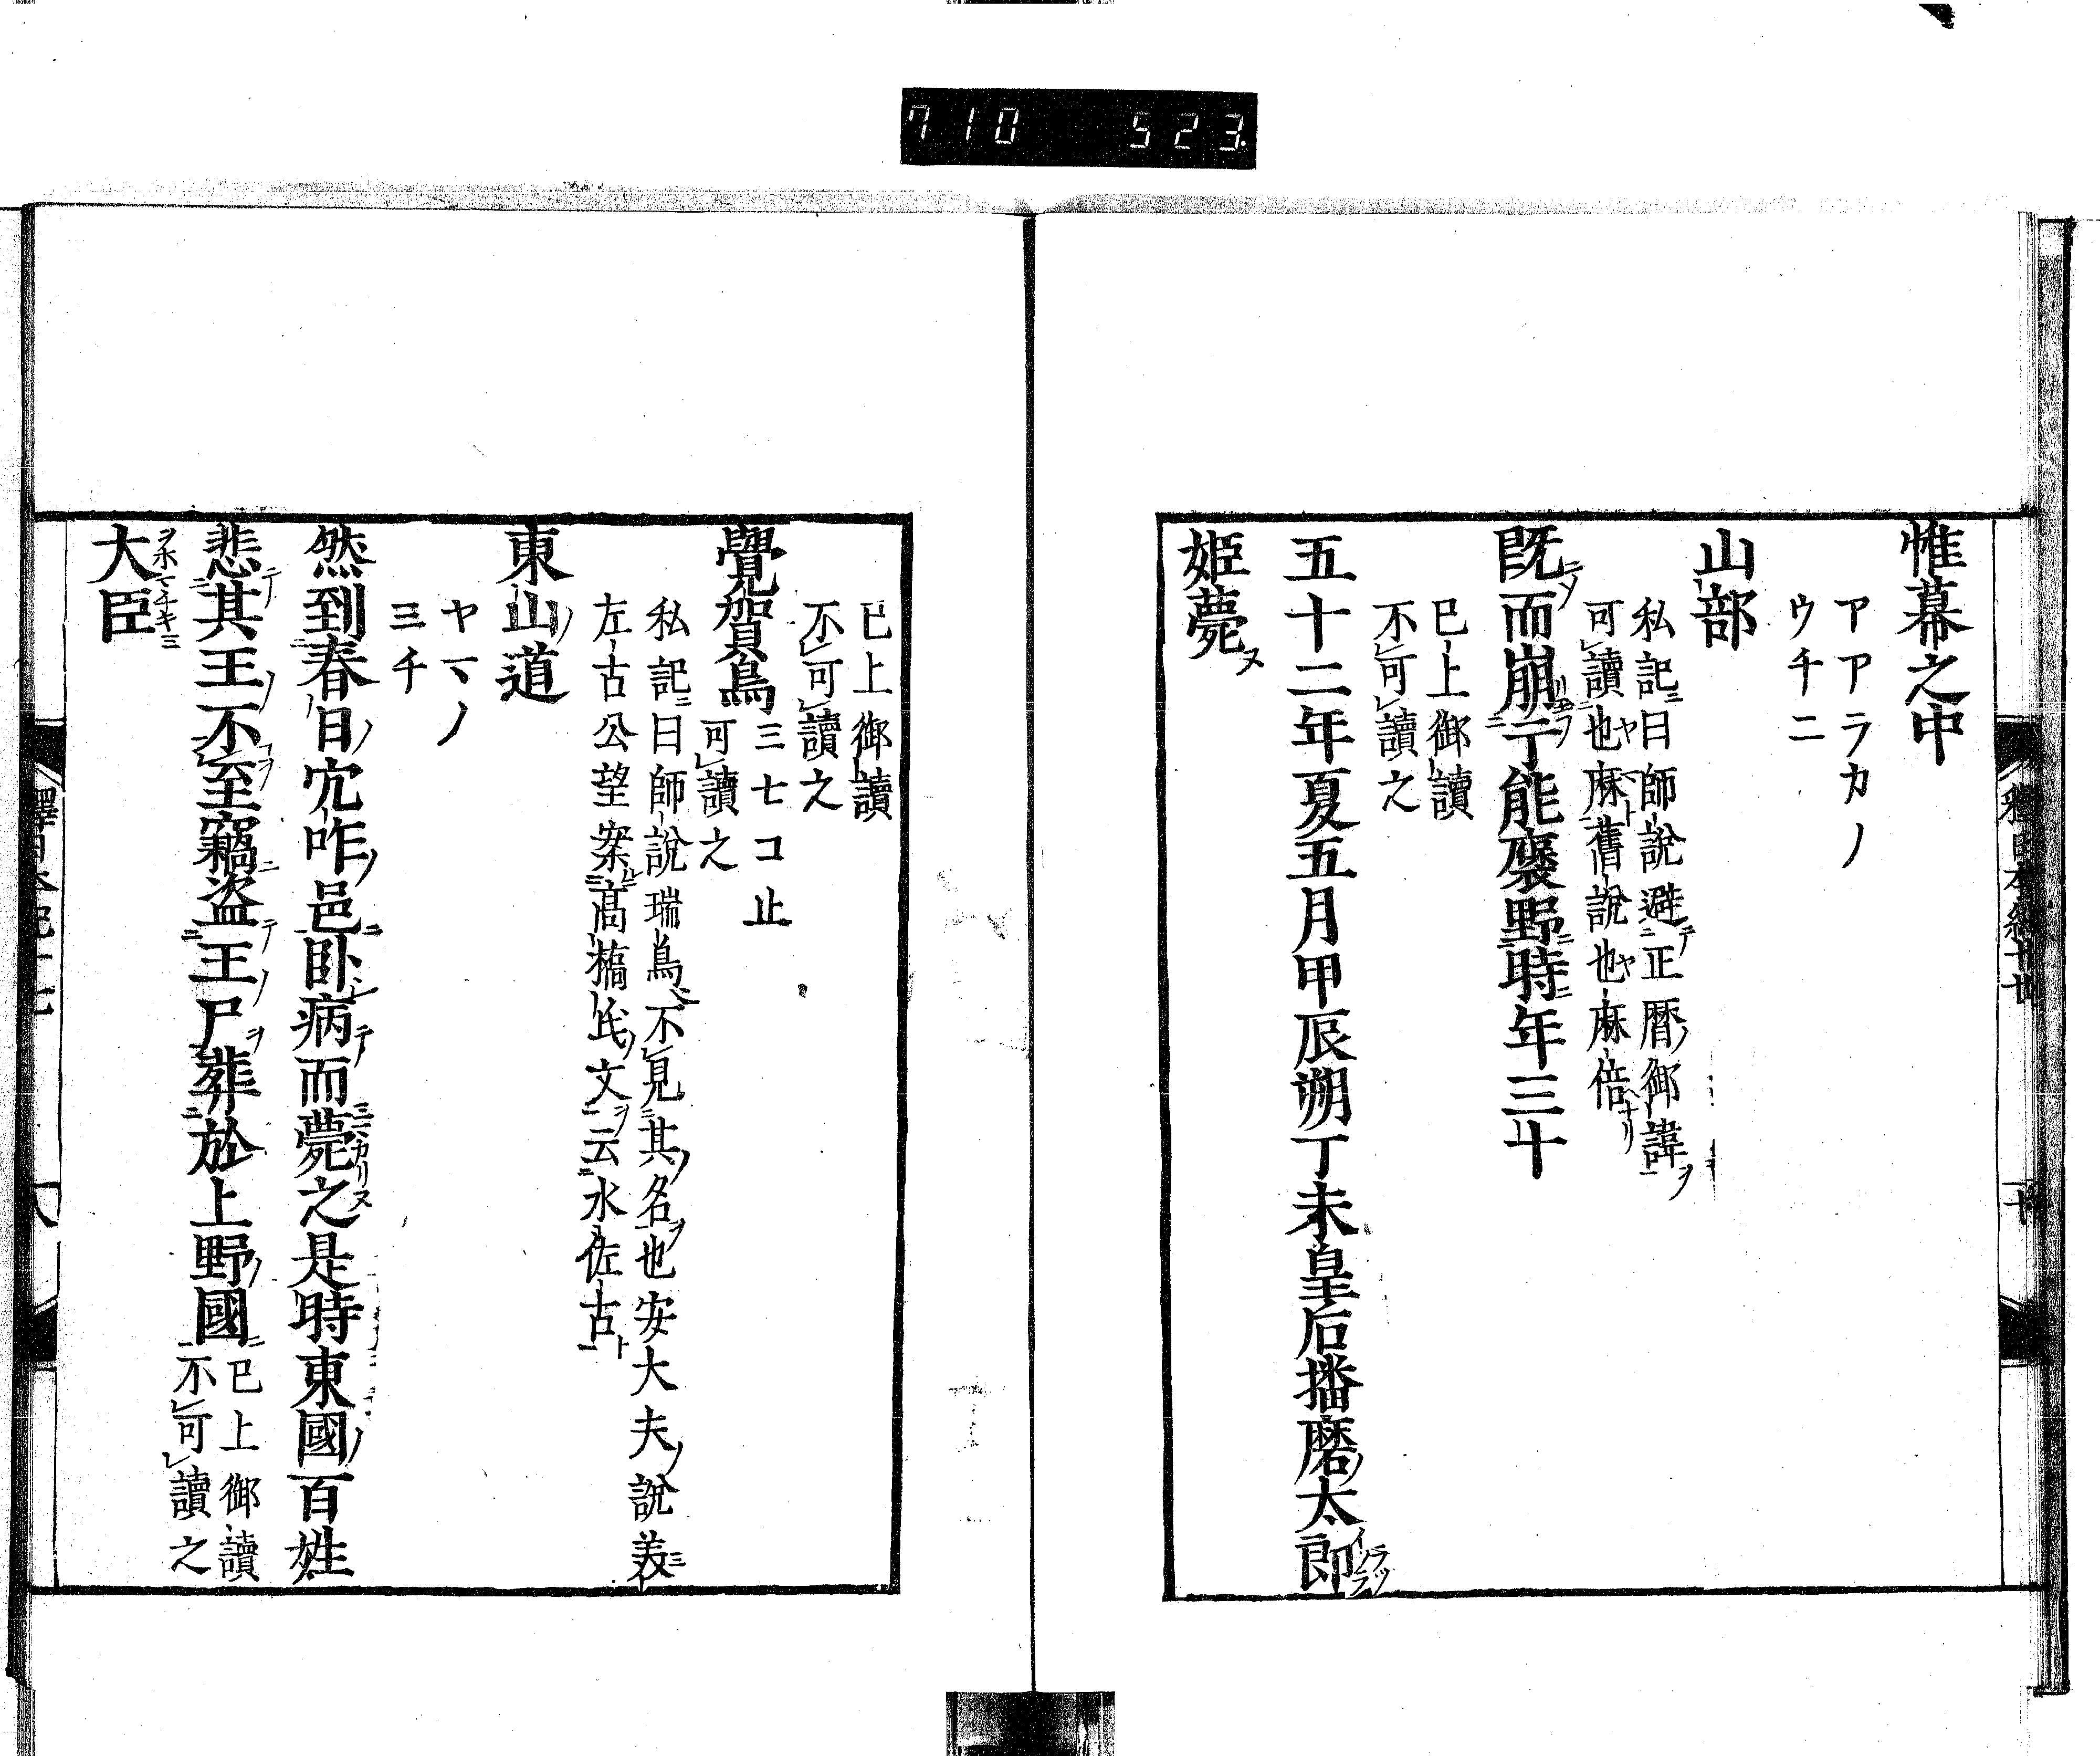 710 523
惟幕之中
アアラカノ
ウチニ
山部
私記曰師説避正暦御諱
可讀也麻舊説也麻倍
既而崩于能褒野時年三十
巳上御讀
不可讀之
五十二年夏五月甲辰朔丁未皇后播磨太郎
姫薨
巳上御讀
不可讀之
覺賀鳥
三七コ止
可讀之
私記曰師説瑞鳥不見其名也安大夫説義
左古公望案髙橋氏文云水佐古
東山道
ヤマノ
三チ
然到春日穴咋邑臥病而薨之是時東國百姓
悲其王不至竊盗王尸葬於上野國
巳上御讀
不可讀之
大臣